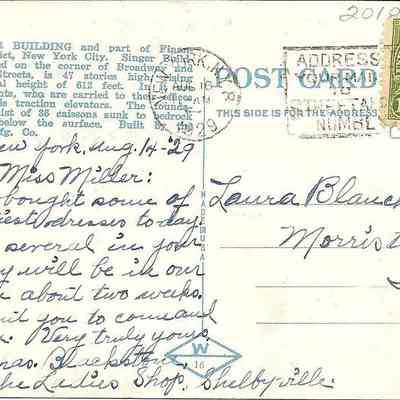 2010
R BUILDING and part of Finan-
rict, New York City. Singer Build-
ed on the corner of Broadway and
Streets, is 47 stories high, rising
al height of 612 feet. In it
nts, who are carried to their offices
s traction elevators. The founda-
ist of 36 caissons sunk to bedrock
below the surface. Built by
Mfg. Co.
N.Y.
AUG 16
AM
1929
POST CARD
THIS SIDE IS FOR THE ADDRESS
ADDRESS
YOUR MAIL
TO
STREET AND
NUMBE
MADE IN U.S.A.
W
16
ew York, Aug. 14-'29
Miss Miller:
bought some of
iest dresses to-day.
several in your
y will be in our
e about two weeks.
it you to come and
Very truly yours,
has. Blackstone,
he Ladies Shop, Shelbyville.
Laura Blanc
Morrist